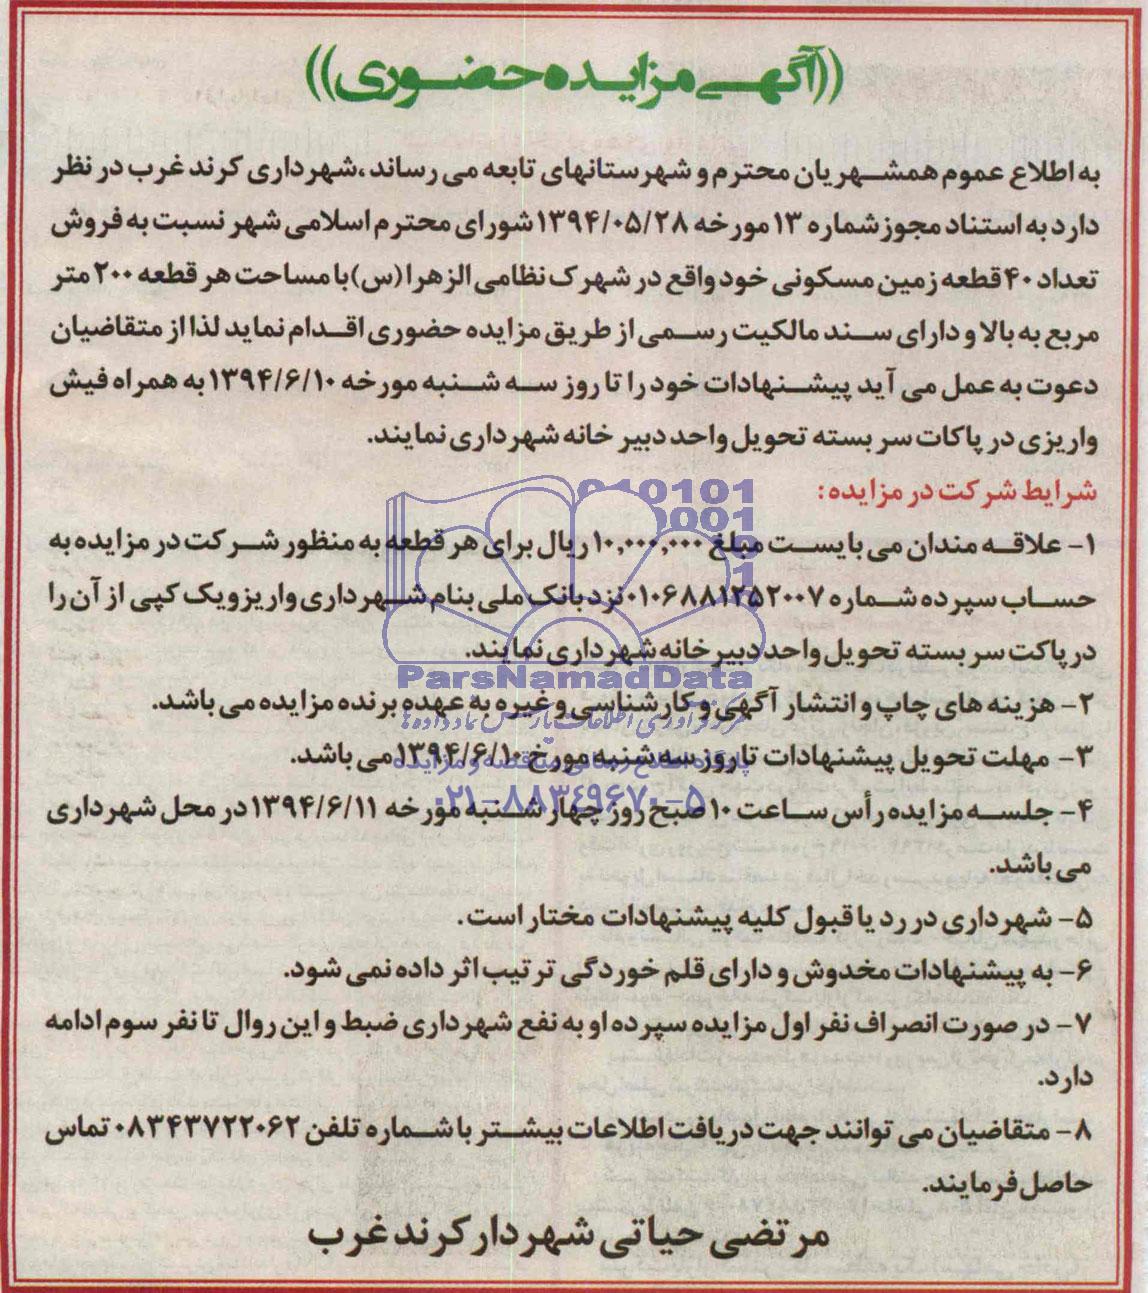 ((آگهی مزایده حضوری))
به اطلاع عموم همشهریان محترم و شهرستانهای تابعه می رساند،شهرداری کرند غرب در نظر
دارد به استناد مجوز شماره ۱۳ مورخه ۱۳۹۴/۰۵/۲۸ شورای محترم اسلامی شهر نسبت به فروش
تعداد ۴۰ قطعه زمین مسکونی خود واقع در شهرک نظامی الزهرا (س) با مساحت هر قطعه ۲۰۰ متر
مربع به بالا و دارای سند مالکیت رسمی از طریق مزایده حضوری اقدام نماید لذا از متقاضیان
دعوت به عمل می آید پیشنهادات خود را تا روز سه شنبه مورخه ۱۳۹۴/۶/۱۰ به همراه فیش
واریزی در پاکات سر بسته تحویل واحد دبیر خانه شهرداری نمایند.
شرایط شرکت در مزایده:
۱- علاقه مندان می بایست مبلغ ۱۰,۰۰۰,۰۰۰ ریال برای هر قطعه به منظور شرکت در مزایده به
حساب سپرده شماره ۰۱۰۶۸۸۱۲۵۲۰۰۷ نزد بانک ملی بنام شهرداری واریز و یک کپی از آن را
در پاکت سر بسته تحویل واحد دبیر خانه شهرداری نمایند.
ParsNamadData
۲- هزینه های چاپ و انتشار آگهی و کارشناسی و غیره به عهده برنده مزایده می باشد.
مرکز فرآوری اطلاعات پارس نماد داده ها
۳- مهلت تحویل پیشنهادات تا روز سه شنبه مورخ ۱۳۹۴/۶/۱۰ می باشد.
پایگاه اطلاع رسانی مناقصه و مزایده
۰۲۱-۸۸۳۴۹۶۷۰-۵
۴- جلسه مزایده رأس ساعت ۱۰ صبح روز چهار شنبه مورخه ۱۳۹۴/۶/۱۱ در محل شهرداری
می باشد.
۵- شهرداری در رد یا قبول کلیه پیشنهادات مختار است.
۶- به پیشنهادات مخدوش و دارای قلم خوردگی ترتیب اثر داده نمی شود.
۷- در صورت انصراف نفر اول مزایده سپرده او به نفع شهرداری ضبط و این روال تا نفر سوم ادامه
دارد.
۸- متقاضیان می توانند جهت دریافت اطلاعات بیشتر با شماره تلفن ۰۸۳۴۳۷۲۲۰۶۲ تماس
حاصل فرمایند.
مرتضی حیاتی شهردار کرند غرب